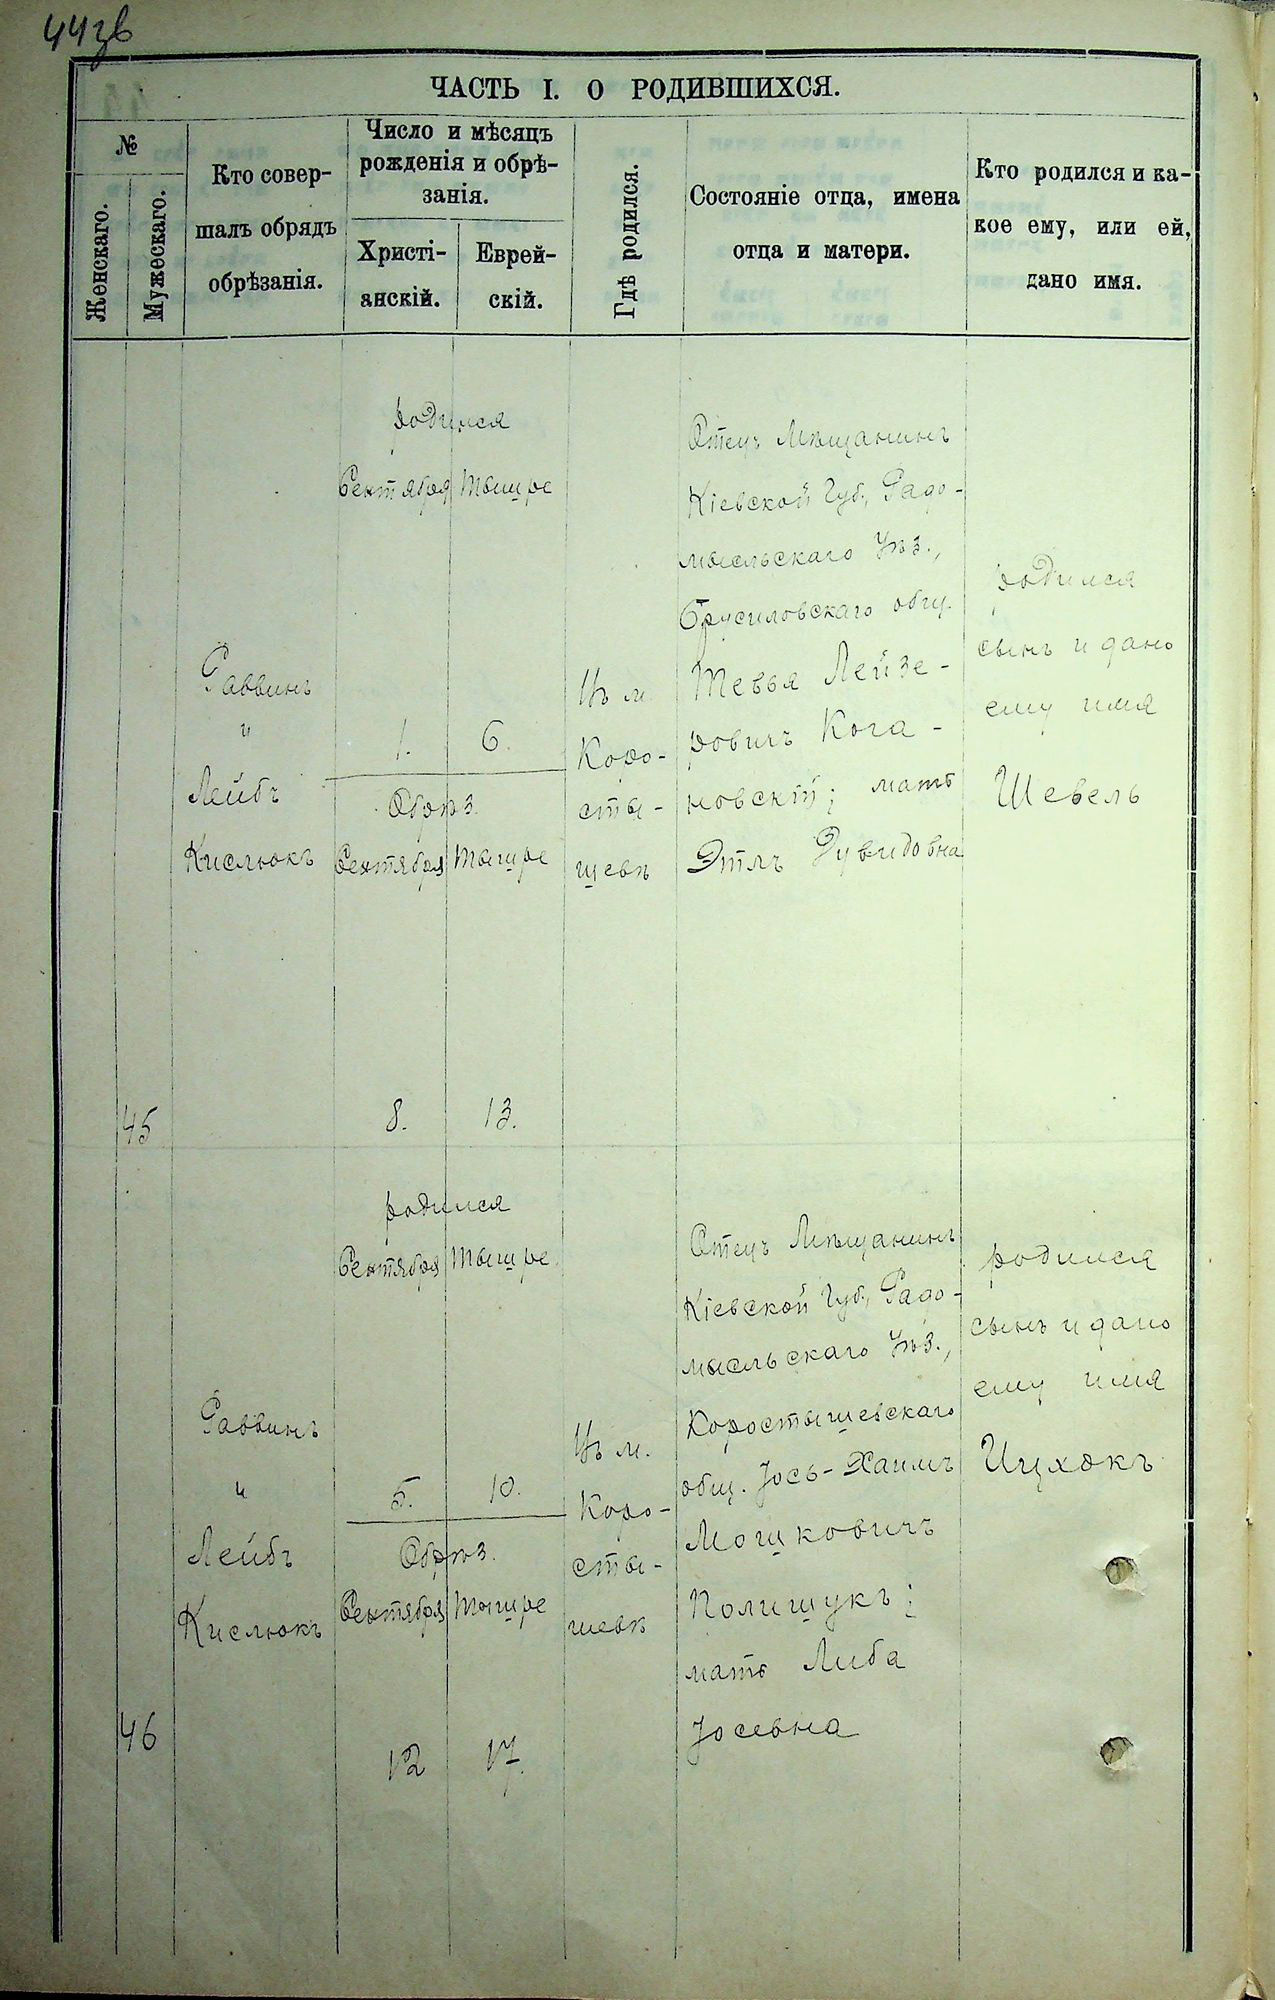 44зв
ЧАСТЬ I. О РОДИВШИХСЯ.
№
Женскаго.
Мужескаго.
Кто совер-
шалъ обрядъ
обрѣзанія.
Число и мѣсяцъ
рожденія и обрѣ-
занія.
Христі-
анскій.
Еврей-
скій.
Гдѣ родился.
Состояніе отца, имена
отца и матери.
Кто родился и ка-
кое ему, или ей,
дано имя.
45
Раввинъ
и
Лейбъ
Кислюкъ
родился
Сентября Тышре
1. 6.
Обрѣз.
Сентября Тышре
8. 13.
Въ м.
Коро-
сты-
шевѣ
Отецъ Мѣщанинъ
Кіевской Губ., Радо-
мысльскаго Уѣз.,
Брусиловскаго общ.
Тевья Лейзе-
ровичъ Кога-
новскій; мать
Этль Дувидовна
родился
сынъ и дано
ему имя
Шевель
46
Раввинъ
и
Лейбъ
Кислюкъ
родился
Сентября Тышре
5. 10.
Обрѣз.
Сентября Тышре
12 17.
Въ м.
Коро-
сты-
шевѣ
Отецъ Мѣщанинъ
Кіевской Губ., Радо-
мысльскаго Уѣз.,
Коростышевскаго
общ. Іось-Хаимъ
Мошковичъ
Полищукъ;
мать Либа
Іосевна
родился
сынъ и дано
ему имя
Ицхокъ